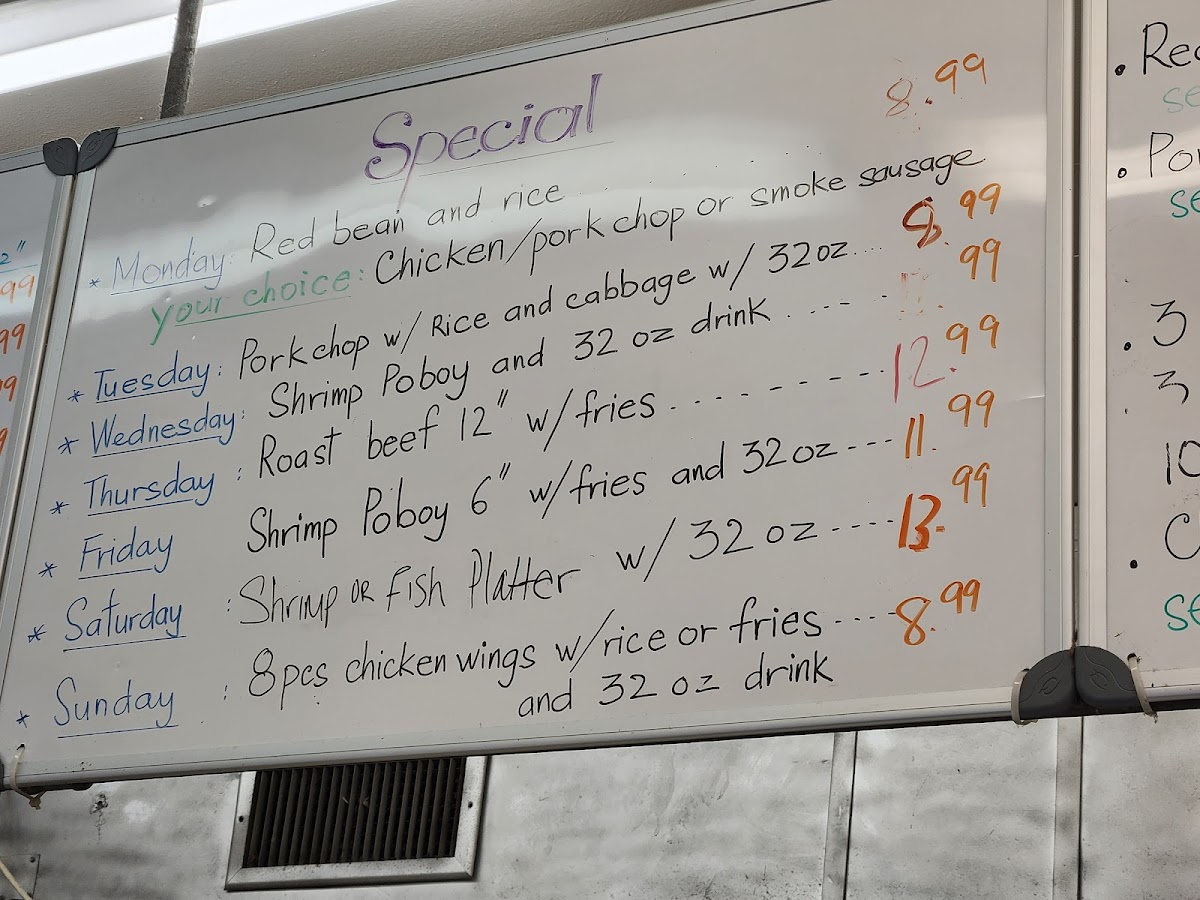 Special
* Monday: Red bean and rice 8.99
your choice: Chicken/pork chop or smoke sausage
* Tuesday: Pork chop w/ Rice and cabbage w/ 32 oz... 8.99
* Wednesday: Shrimp Poboy and 32 oz drink ..---- .99
* Thursday: Roast beef 12" w/ fries ....------ 12.99
* Friday Shrimp Poboy 6" w/fries and 32 oz --- 11.99
* Saturday : Shrimp OR Fish Platter w/ 32 oz ---- 13.99
* Sunday : 8pcs chicken wings w/rice or fries --- 8.99
and 32 oz drink
2"
99
99
99
9
. Re
se
. Po
se
. 3
3
10
. C
se